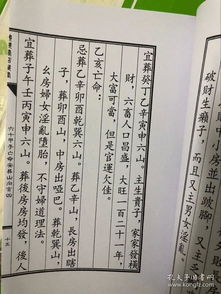 破財生癩子，而且又主男女淫亂
小房並出跛脚，又主
宜葬癸丁乙辛寅申六山。主生貴子，家家發積
財，六畜人口昌盛，大旺一百二十一年，
大富可當，但是官運欠佳。
乙亥亡命：
忌葬乙辛卯酉乾巽六山。葬乙辛山，長房出瞎
子，葬卯酉山，中房出啞巴。葬乾巽山，
幺房婦女淫亂墮胎，不守婦道理法。
宜葬子午壬丙寅申六山，葬後房房均發，後人
六十甲子亡命安葬山向吉凶